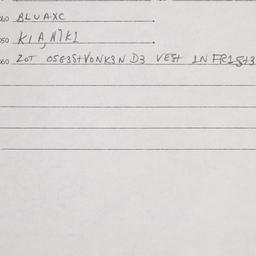 040 BLUAXC
050 KIA, NIKI
060 ZOT OSE3StVONK3N D3 VESt IN FR1St3